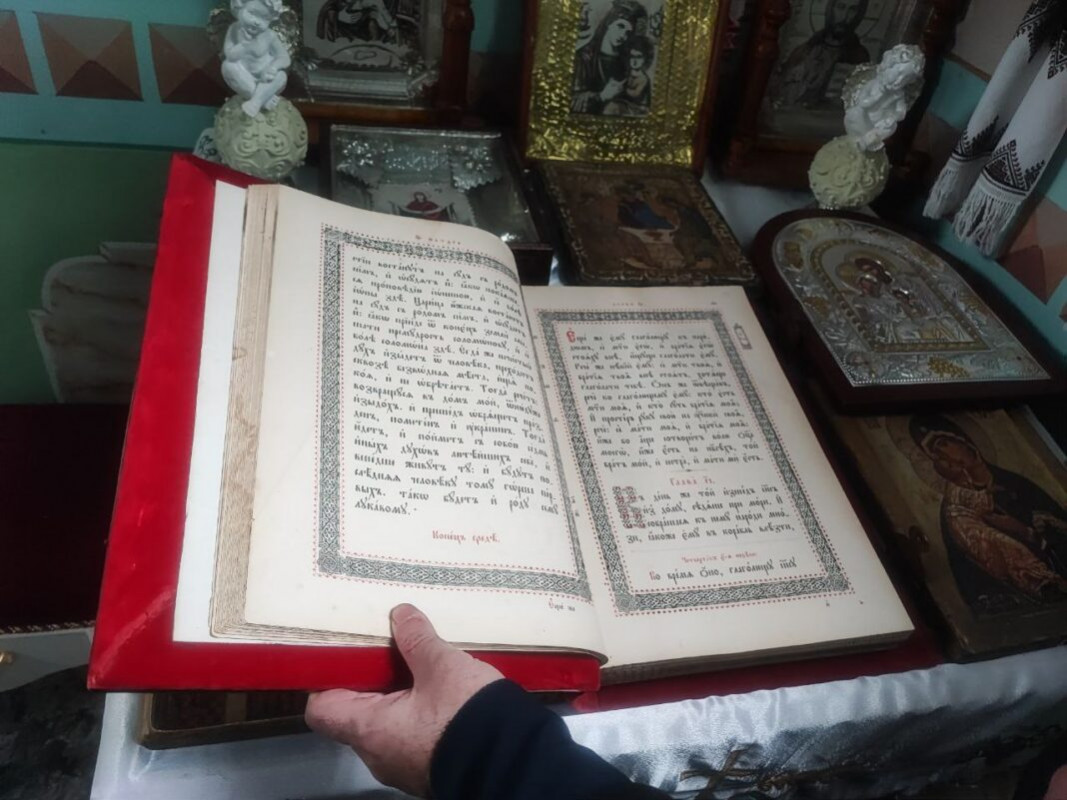 стіи востанутъ на судъ съ родомъ
симъ, и ѡсудятъ и: ꙗкѡ покаяшася
проповѣдію іѡниною, и се боле
іѡны здѣ. Царица южская востанетъ
на судъ съ родомъ симъ, и ѡсудитъ
и: ꙗкѡ пріиде ѿ конецъ земли
премудрость соломѡнову, и се
боле соломѡна здѣ. Егда же нечистый
духъ изыдетъ ѿ человѣка, преходитъ
сквозѣ безводная мѣста, ищя
покоя, и не ѡбрѣтаетъ. Тогда речетъ:
возвращуся въ домъ мой, ѿнюдуже
изыдохъ. и пришедъ ѡбрящетъ
празденъ, пометенъ и украшенъ. Тогда
идетъ, и пойметъ съ собою седмь
иныхъ духѡвъ лютѣйшихъ себе, и
вшедше живутъ ту: и будутъ
послѣдняя человѣку тому гѡрша
первыхъ. такѡ будетъ и роду сему
лукавому.
Конецъ средѣ.
Еще же
Еще же ему глаголющу къ
народѡмъ, се мати егѡ, и братія егѡ
стояху внѣ, ищуще глаголати ему.
Рече же нѣкій ему: се мати твоя, и
братія твоя внѣ стоятъ, хотяще
глаголати тебѣ. Онъ же ѿвѣщавъ,
рече ко глаголющему ему: кто есть
мати моя, и кто суть братія моя;
И простеръ руку свою на ученики своя,
рече: се мати моя, и братія моя.
Иже бо аще сотворитъ волю Отца
моегѡ, иже есть на нб҃сѣхъ, той
братъ мой, и сестра, и мати ми есть.
Глава гі.
Въ день же той изшедъ іисъ
из̾ дому, сѣдяше при мори. И
собрашася къ нему народи мнози,
ꙗкоже ему въ корабль влѣзти,
Во время ѻно, глаголющу іису